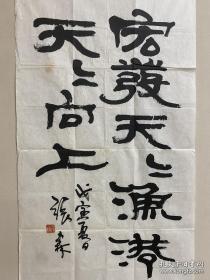 宏發天〻漁港
天〻向上
戊寅夏日
張森